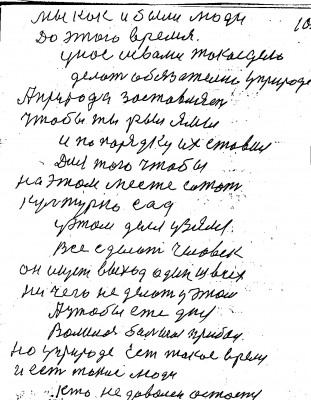 мы как и были люди
до этого время.
у нос и вами такое дело
делат обязателно у природе
А природа заставляет
чтобы ты рыл ямы
и по порядку их ставил
Для того чтобы
на этом месте
культурно сад
у этом деле узял.
Все сделает человек
он ищет выход один из всех
ни чего не делат у этом
А чтобы ете дну
болшая
но у природе ест такое время
и ест такие люди
кто не доволен